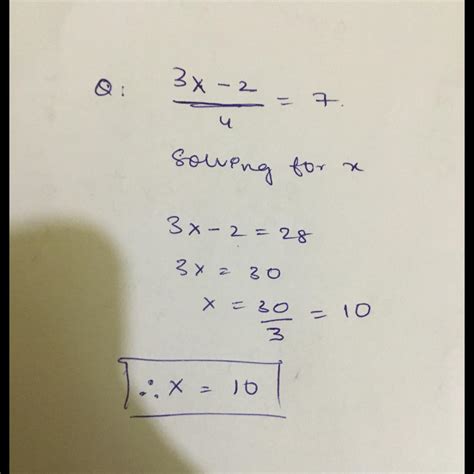 Q: 3x-2/4 = 7.
Solveng for x
3x-2 = 28
3x = 30
x = 30/3 = 10
∴ x = 10